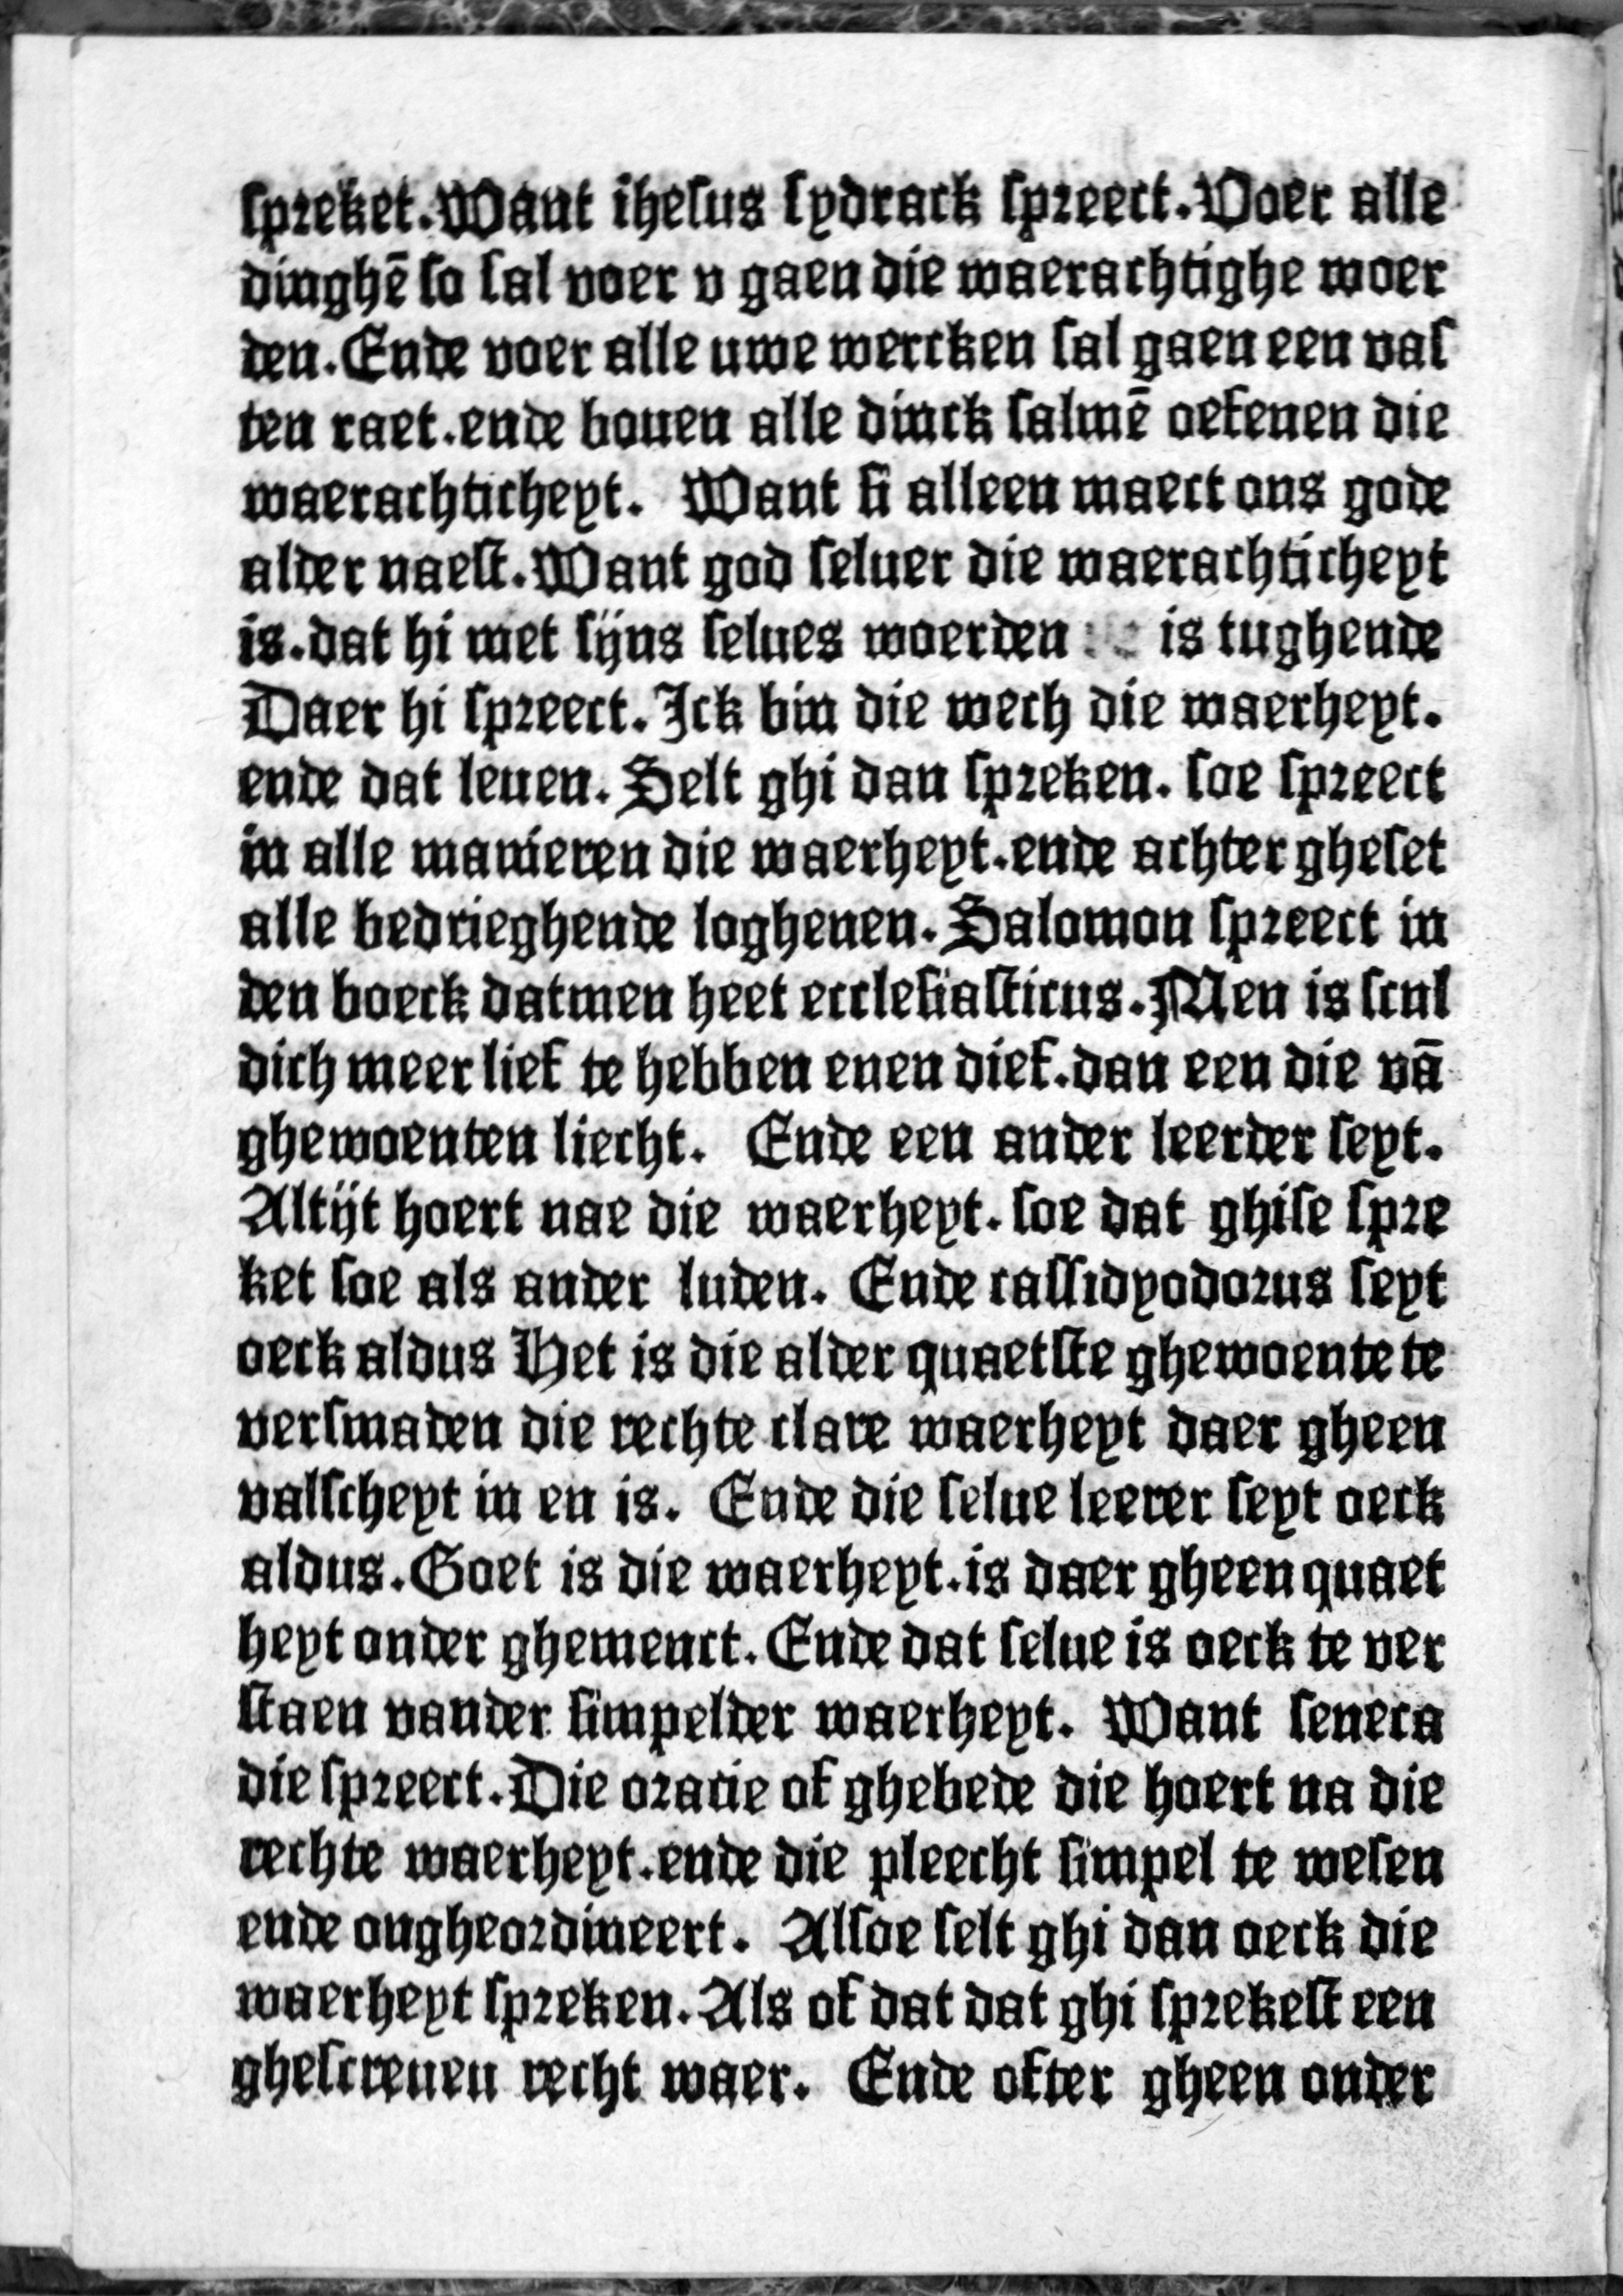 ſpreket. Want iheſus ſydrack ſpreect. Voer alle
dinghē ſo ſal voer v gaen die waerachtighe woer
den. Ende voer alle uwe wercken ſal gaen een vaſ
ten raet. ende bouen alle dinck ſalmē oefenen die
waerachticheyt. Want ſi alleen maect ons gode
alder naeſt. Want god ſeluer die waerachticheyt
is. dat hi met ſijns ſelues woerden is tughende
Daer hi ſpreect. Ick bin die wech die waerheyt.
ende dat leuen. Selt ghi dan ſpreken. ſoe ſpreect
in alle manieren die waerheyt. ende achter gheſet
alle bedrieghende loghenen. Salomon ſpreect in
den boeck datmen heet eccleſiaſticus. Men is ſcul
dich meer lief te hebben enen dief. dan een die vā
ghewoenten liecht. Ende een ander leerder ſeyt.
Altijt hoert nae die waerheyt. ſoe dat ghiſe ſpre
ket ſoe als ander luden. Ende caſſidyodorus ſeyt
oeck aldus Het is die alder quaetſte ghewoente te
verſmaden die rechte clare waerheyt daer gheen
valſcheyt in en is. Ende die ſelue leerer ſeyt oeck
aldus. Goet is die waerheyt. is daer gheen quaet
heyt onder ghemenct. Ende dat ſelue is oeck te ver
ſtaen vander ſimpelder waerheyt. Want ſeneca
die ſpreect. Die oracie of ghebede die hoert na die
rechte waerheyt. ende die pleecht ſimpel te weſen
ende ongheordineert. Alſoe ſelt ghi dan oeck die
waerheyt ſpreken. Als of dat dat ghi ſprekeſt een
gheſcreuen recht waer. Ende ofter gheen onder